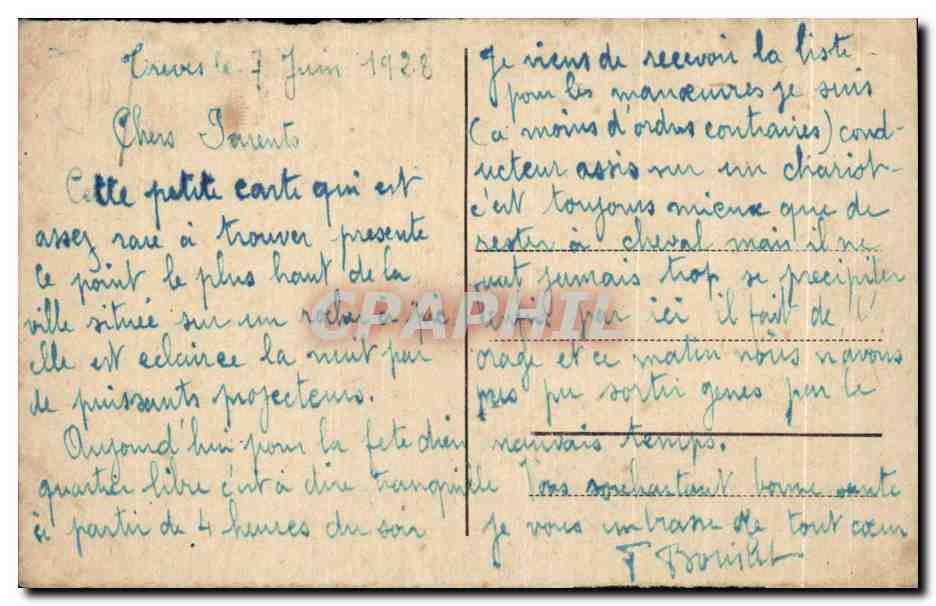 Treves le 7 Juin 1928
Chers Parents
Cette petite carte qui est
assez rare à trouver presente
le point le plus haut de la
ville située sur un rocher a pic
Elle est eclairee la nuit par
de puissants projecteurs.
Aujourd'hui pour la fete dieu
quartier libre c'est à dire tranquille
à partir de 4 heures du soir
Je viens de recevoir la liste
pour les manœuvres je suis
(a moins d'ordres contraires) cond-
ucteur assis sur un chariot
c'est toujours mieux que de
rester à cheval mais il ne
vaut jamais trop se precipiter
par ici il fait de l'
orage et ce matin nous n'avons
pas pu sortir genes par le
mauvais temps.
Vous souhaitant bonne sante
je vous embrasse de tout cœur
F
CPAPHIL